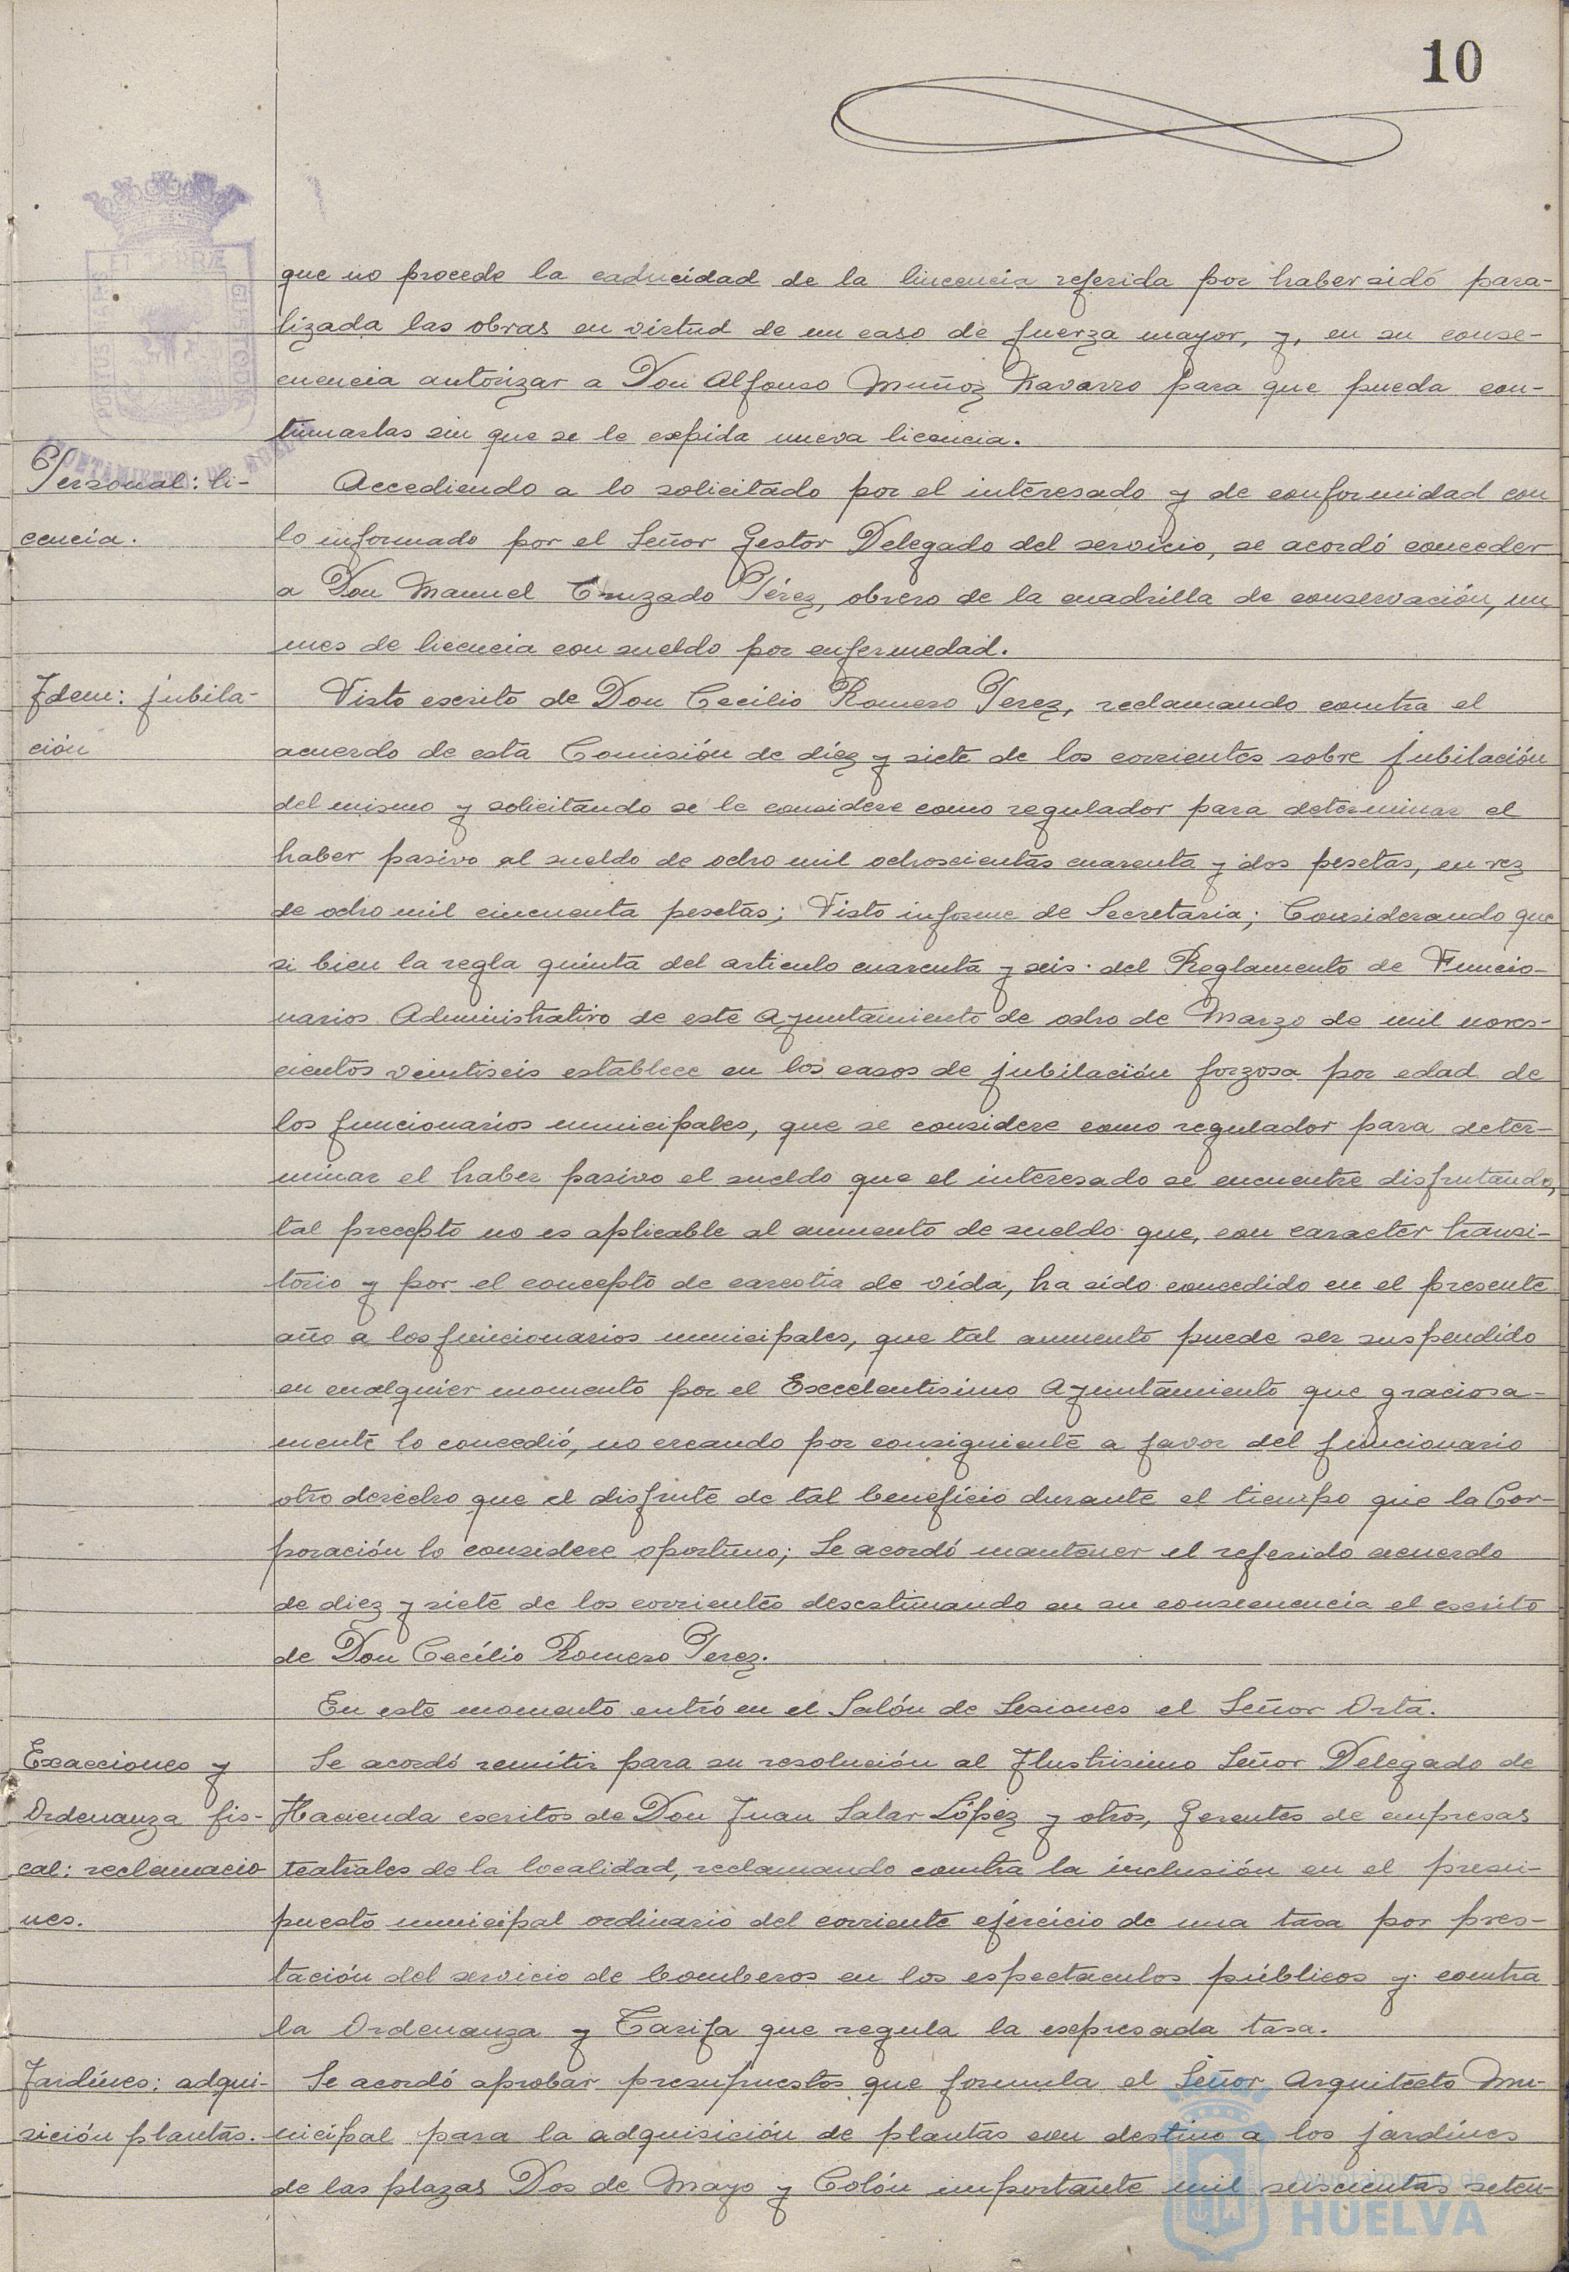 10
que no procede la caducidad de la lincencia referida por haber sido para-
lizada las obras en virtud de un caso de fuerza mayor, y, en su conse-
cuencia autorizar a Don Alfonso Muñoz Navarro para que pueda con-
tinuarlas sin que se le expida nueva licencia.
Personal: li-
cencia.
Accediendo a lo solicitado por el interesado y de conformidad con
lo informado por el Señor Gestor Delegado del servicio, se acordó conceder
a Don Manuel Cruzado Pérez, obrero de la cuadrilla de conservación, un
mes de licencia con sueldo por enfermedad.
Idem: jubila-
ción
Visto escrito de Don Cecilio Romero Perez, reclamando contra el
acuerdo de esta Comisión de diez y siete de los corrientes sobre jubilación
del mismo y solicitando se le considere como regulador para determinar el
haber pasivo el sueldo de ocho mil ochoscientas cuarenta y dos pesetas, en vez
de ocho mil cincuenta pesetas; Visto informe de Secretaria; Considerando que
si bien la regla quinta del articulo cuarenta y seis del Reglamento de Funcio-
narios Administrativo de este Ayuntamiento de ocho de Marzo de mil noves-
cientos veintiseis establece en los casos de jubilación forzosa por edad de
los funcionarios municipales, que se considere como regulador para deter-
minar el haber pasivo el sueldo que el interesado se encuentre disfrutando,
tal precepto no es aplicable al aumento de sueldo que, con caracter transi-
torio y por el concepto de carestia de vida, ha sido concedido en el presente
año a los funcionarios municipales, que tal aumento puede ser suspendido
en cualquier momento por el Excelentisimo Ayuntamiento que graciosa-
mente lo concedió, no creando por consiguiente a favor del funcionario
otro derecho que el disfrute de tal beneficio durante el tiempo que la Cor-
poración lo considere oportuno; Se acordó mantener el referido acuerdo
de diez y siete de los corrientes desestimando en su consecuencia el escrito
de Don Cecilio Romero Perez.
En este momento entró en el Salón de Sesiones el Señor Orta.
Exacciones y
Ordenanza fis-
cal: reclamacio-
nes.
Se acordó remitir para su resolución al Ilustrisimo Señor Delegado de
Hacienda escritos de Don Juan Salar López y otros, Gerentes de empresas
teatrales de la localidad, reclamando contra la inclusión en el presu-
puesto municipal ordinario del corriente ejercicio de una tasa por pres-
tación del servicio de bomberos en los espectaculos públicos y contra
la Ordenanza y Tarifa que regula la expresada tasa.
Jardines: adqui-
sición plantas.
Se acordó aprobar presupuestos que formula el Señor Arquitecto Mu-
nicipal para la adquisición de plantas con destino a los jardines
de las plazas Dos de Mayo y Colón importante mil seiscientas seten-
Ayuntamiento de
HUELVA